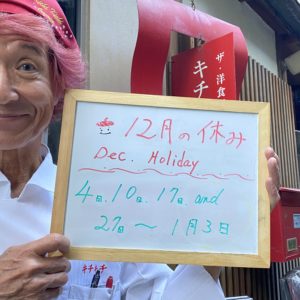 ザ・洋食
キチ
12月の休み
Dec. Holiday
4日、10日、17日、and
27日〜1月3日
キチキチ